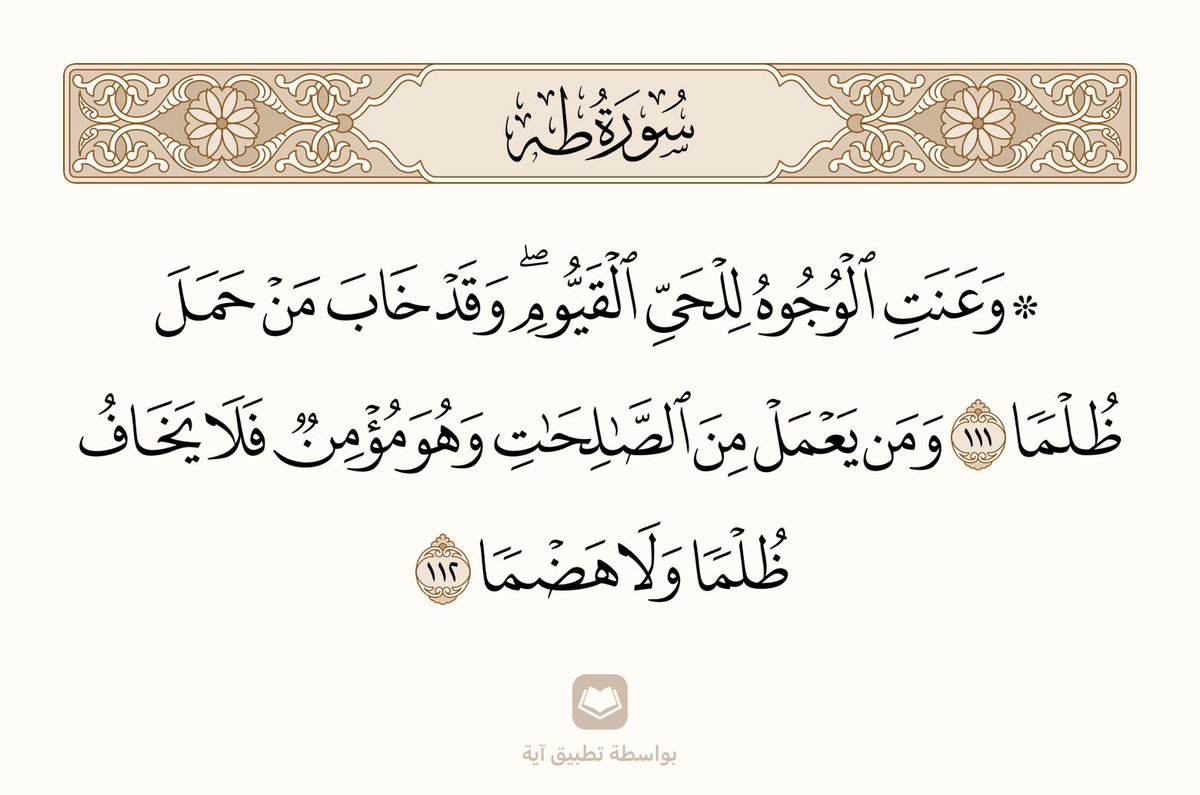 سُورَةُ طه
۞ وَعَنَتِ ٱلْوُجُوهُ لِلْحَىِّ ٱلْقَيُّومِ ۖ وَقَدْ خَابَ مَنْ حَمَلَ
ظُلْمًا ١١١ وَمَن يَعْمَلْ مِنَ ٱلصَّـٰلِحَـٰتِ وَهُوَ مُؤْمِنٌ فَلَا يَخَافُ
ظُلْمًا وَلَا هَضْمًا ١١٢
بواسطة تطبيق آية